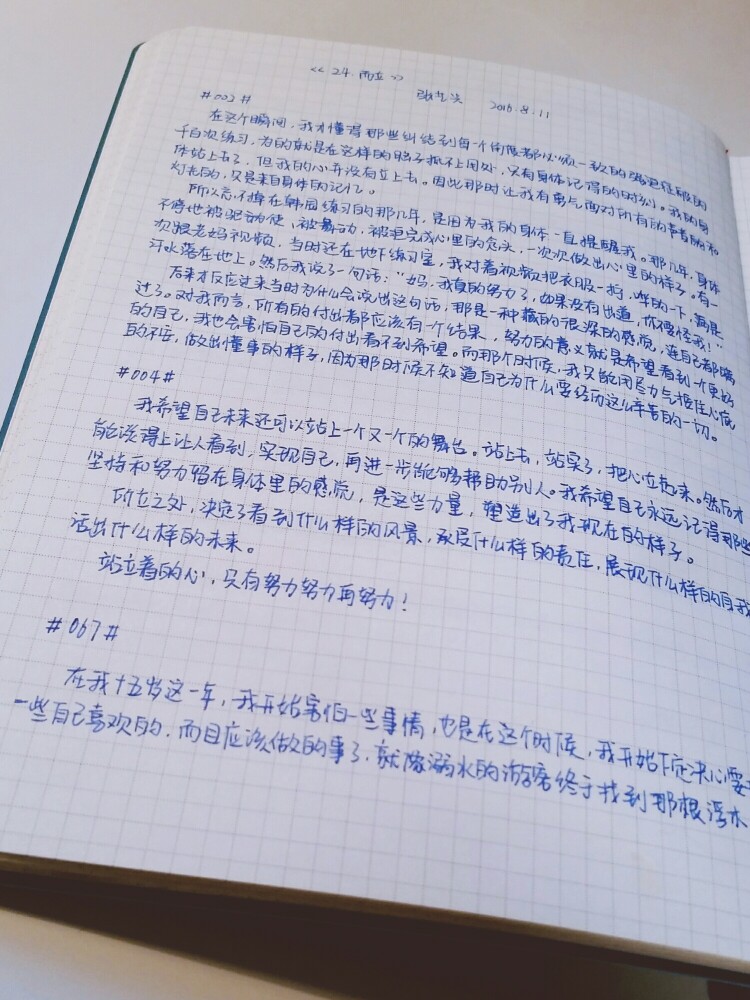 <<24.而立>>
张艺兴 2016.8.11
#002#
在这个瞬间,我才懂得那些纠结到每个角限都必须一致的强迫症般的
千百次练习,为的就是在这样的脑子抓不上用处,只有身体记得的时刻。我的身
体站上去了,但我的心并没有立上去。因此那时让我有勇气面对所有的掌声和
灯光的,只是来自身体的记忆。
所以忘不掉在韩国练习的那几年,是因为我的身体一直提醒我。那几年,身体
不停地被驱动使、被舞动,被迫完成心里的念头,一次次做出心里的样子。有一
次跟老妈视频,当时还在地下练习室,我对着视频把衣服一拧,哗的一下,满是
汗水落在地上。然后我说了一句话:“妈,我真的努力了,如果没有出道,你别怪我!”
后来才反应过来当时为什么会说出这句话,那是一种藏的很深的感觉,连自己都瞒
过了。对我而言,所有的付出都应该有个结果,努力的意义就是希望看到一个更好
的自己,我也会害怕自己的付出看不到希望。而那个时候,我只能用尽力气按住心底
的不安,做出懂事的样子,因为那时候不知道自己为什么要经历这么辛苦的一切。
#004#
我希望自己未来还可以站上一个又一个的舞台。站上去,站实了,把心立起来。然后才
能谈得上让人看到,实现自己,再进一步能够帮助别人。我希望自己永远记得那些
坚持和努力留在身体里的感觉,是这些力量,塑造出了我现在的样子。
所立之处,决定了看到什么样的风景,承受什么样的责任,展现什么样的自我
活出什么样的未来。
站立着的心,只有努力努力再努力!
#067#
在我十五岁这一年,我开始害怕一些事情,也是在这个时候,我开始下定决心要
一些自己喜欢的,而且应该做的事了,就像溺水的游客终于找到那根浮木